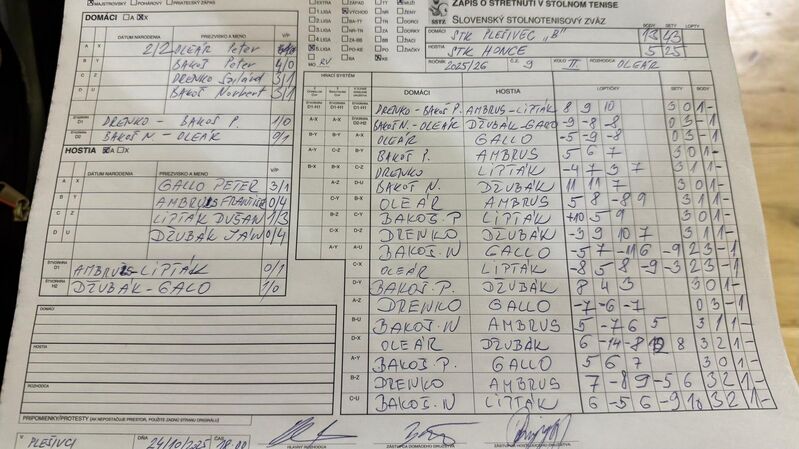 MAJSTROVSKÝ POHÁROVÝ PRIATEĽSKÝ ZÁPAS
ZÁPIS O STRETNUTÍ V STOLNOM TENISE
SLOVENSKÝ STOLNOTENISOVÝ ZVÄZ
SSTZ
1.LIGA VÝCHOD
5.LIGA
MO RV
DOMÁCI STK PLEŠIVEC „B"
HOSTIA STK HONCE
ROČNÍK 2025/26 Č.Z. 9 KOLO II. ROZHODCA OLEÁR
BODY SETY LOPTY
13 43
5 25
DOMÁCI A X
DÁTUM NARODENIA PRIEZVISKO A MENO V/P
A X 2/2 OLEÁR Peter
B Y BAKOŠ Peter 4/0
C Z DRENKO Szilárd 3/1
D U BAKOŠ Norbert 3/1
ŠTVORHRA D1 DRENKO - BAKOŠ P. 1/0
ŠTVORHRA D2 BAKOŠ N. - OLEÁR 0/1
HOSTIA X A X
DÁTUM NARODENIA PRIEZVISKO A MENO V/P
A X GALLO PETER 3/1
B Y AMBRUS FRANTIŠEK 0/4
C Z LIPTÁK DUŠAN 1/3
D U DŽUBÁK JÁN 0/4
ŠTVORHRA D1 AMBRUS-LIPTÁK 0/1
ŠTVORHRA H2 DŽUBÁK-GALO 1/0
HRACÍ SYSTÉM DOMÁCI HOSTIA LOPTIČKY SETY BODY
DRENKO-BAKOŠ P. AMBRUS-LIPTÁK 8 9 10 3 0 1 -
BAKOŠ N.-OLEÁR DŽUBÁK-GALO -9 -8 -8 0 3 - 1
OLEÁR GALLO -5 -9 -8 0 3 - 1
BAKOŠ P. AMBRUS 5 6 7 3 0 1 -
DRENKO LIPTÁK -4 7 3 7 3 1 1 -
BAKOŠ N. DŽUBÁK 11 11 7 3 0 1 -
OLEÁR AMBRUS 5 8 -8 9 3 1 1 -
BAKOŠ.P LIPTÁK 10 5 9 3 0 1 -
DRENKO DŽUBÁK -3 9 10 7 3 1 1 -
BAKOŠ.N GALLO -5 7 -11 6 -9 2 3 - 1
OLEÁR LIPTÁK -8 5 8 -9 -3 2 3 - 1
BAKOŠ P. DŽUBÁK 8 4 3 3 0 1 -
DRENKO GALLO -7 -6 -7 0 3 - 1
BAKOŠ N AMBRUS 5 -7 6 5 3 1 1 -
OLEÁR DŽUBÁK 6 -14 -8 12 8 3 2 1 -
BAKOŠ.P. GALLO 5 6 7 3 0 1 -
DRENKO AMBRUS 7 -8 9 -5 6 3 2 1 -
BAKOŠ.N LIPTÁK 6 -5 6 -9 10 3 2 1 -
DOMÁCI
HOSTIA
ROZHODCA
PRIPOMIENKY/PROTESTY (AK NEPOSTAČUJE PRIESTOR, POUŽITE ZADNÚ STRANU ORIGINÁLU)
V PLEŠIVCI DŇA 24/10/2025 ČAS 18.00
HLAVNÝ ROZHODCA ZÁSTUPCA DOMÁCEHO DRUŽSTVA ZÁSTUPCA HOSŤUJÚCEHO DRUŽSTVA